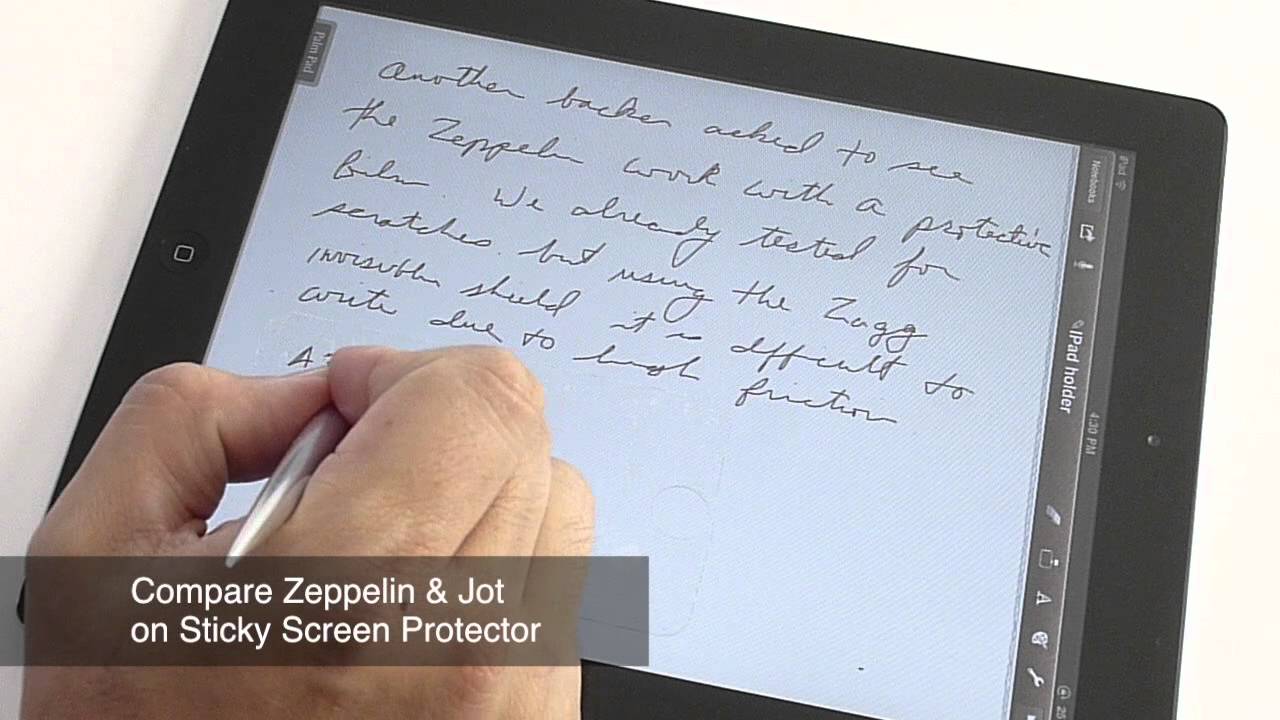 Palm Pad
Another backer asked to see
the Zeppelin work with a protective
film. We already tested for
scratches. but using the Zagg
invisible shield it is difficult to
write due to high friction
iPad
Notebooks
iPad holder
4:30 PM
Compare Zeppelin & Jot
on Sticky Screen Protector